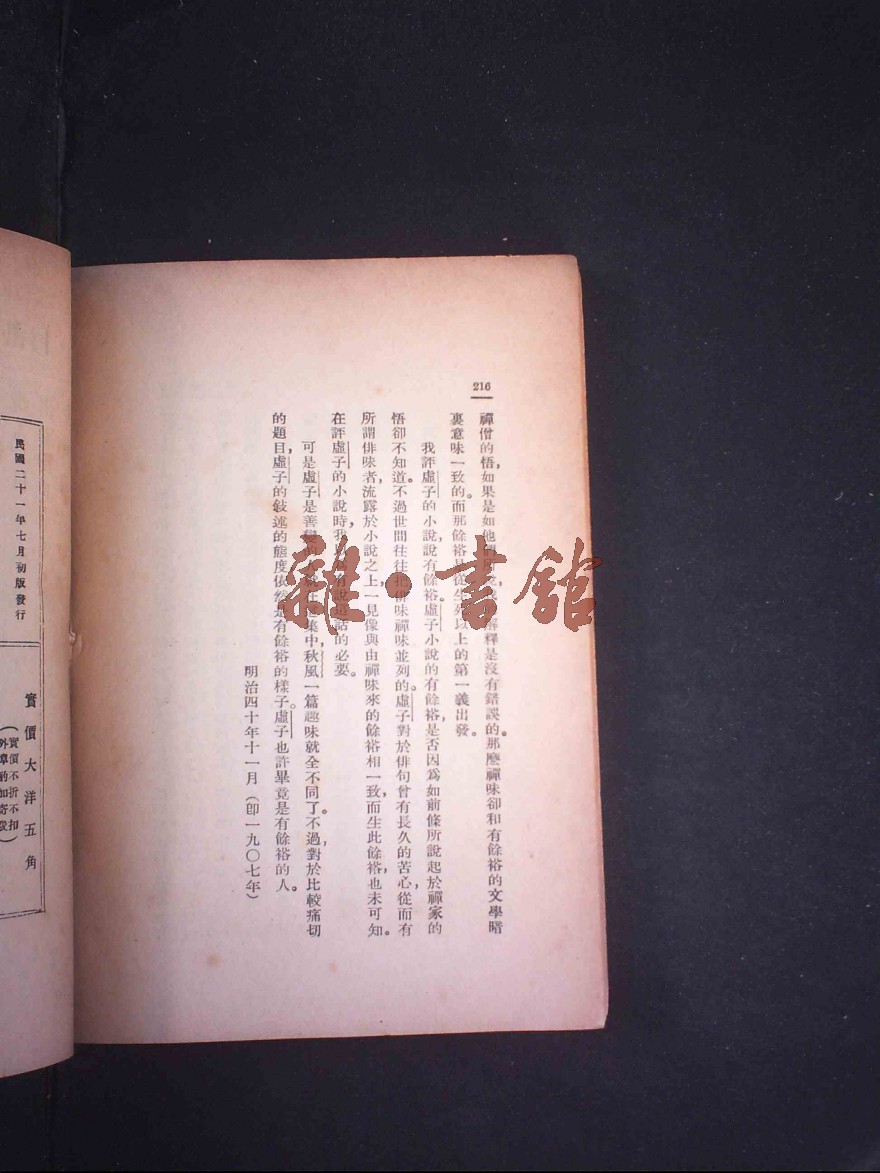 216
禪僧的悟，如果是如他 解釋是沒有錯誤的。那麼禪味卻和有餘裕的文學暗
裏意味一致的。而那餘裕是從生死以上的第一義出發。
我評虛子的小說，說有餘裕。虛子小說的有餘裕，是否因爲如前條所說起於禪家的
悟卻不知道。不過世間往往把俳味禪味並列的。虛子對於俳句曾有長久的苦心，從而有
所謂俳味者，流露於小說之上，一見像與由禪味來的餘裕相一致，而生此餘裕，也未可知。
在評虛子的小說時，我 有說這話的必要。
可是虛子是善 集中，秋風一篇趣味就全不同了。不過，對於比較痛切
的題目，虛子的敍述的態度依然是有餘裕的樣子。虛子也許畢竟是有餘裕的人。
明治四十年十一月（卽一九〇七年）
雜·書館
實價大洋五角
（實價不折不扣
外埠酌加寄
民國二十一年七月初版發行